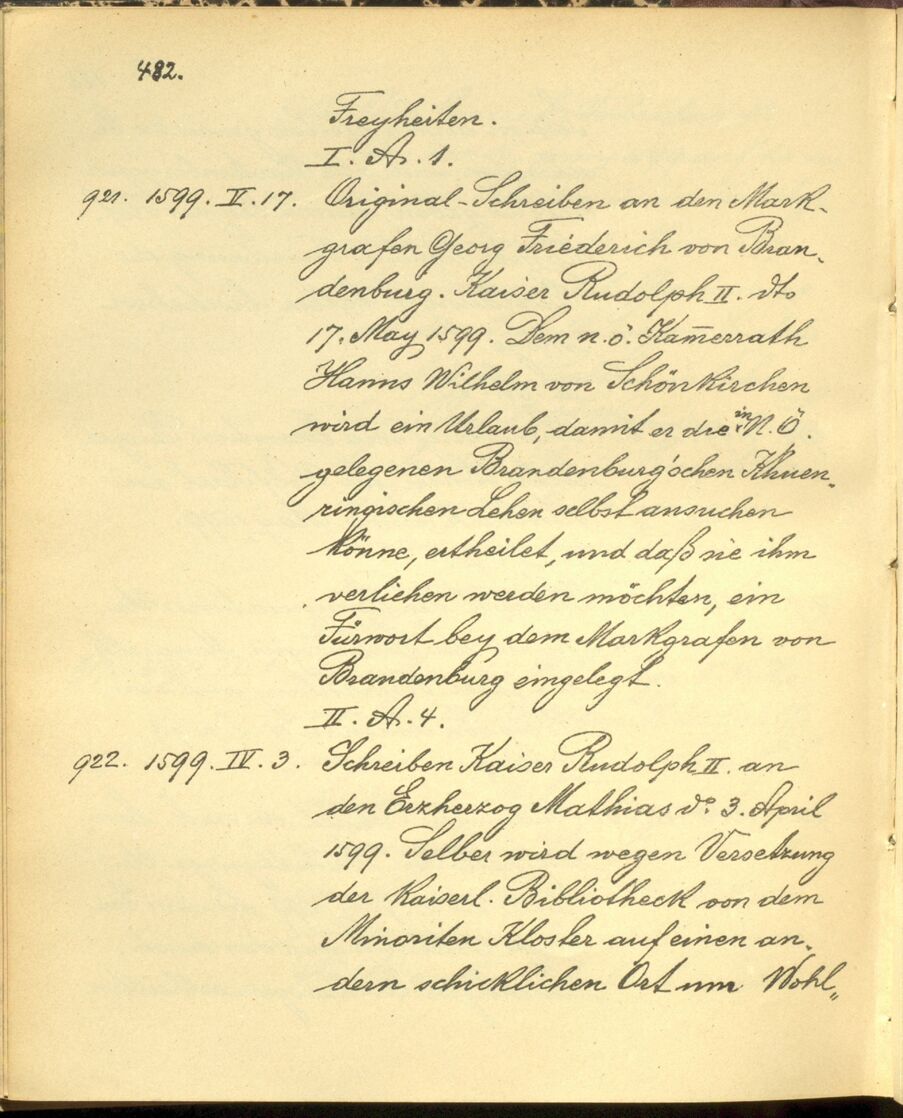 482.
Freyheiten.
I. A. 1.
921. 1599. V. 17. Original-Schreiben an den Mark-
grafen Georg Friederich von Bran-
denburg. Kaiser Rudolph II. dto
17. May 1599. Dem n. ö. Kam̅errath
Hanns Wilhelm von Schönkirchen
wird ein Urlaub, damit er die in N. Ö.
gelegenen Brandenburg'schen Khuen-
ringischen Lehen selbst ansuchen
könne, ertheilet, und daß sie ihm
verliehen werden möchten, ein
Fürwort bey dem Markgrafen von
Brandenburg eingelegt.
II. A. 4.
922. 1599. IV. 3. Schreiben Kaiser Rudolph II. an
den Erzherzog Mathias do 3. April
1599. Selber wird wegen Versetzung
der Kaiserl. Bibliotheck von dem
Minoriten Kloster auf einen an-
dern schicklichen Ort um Wohl„